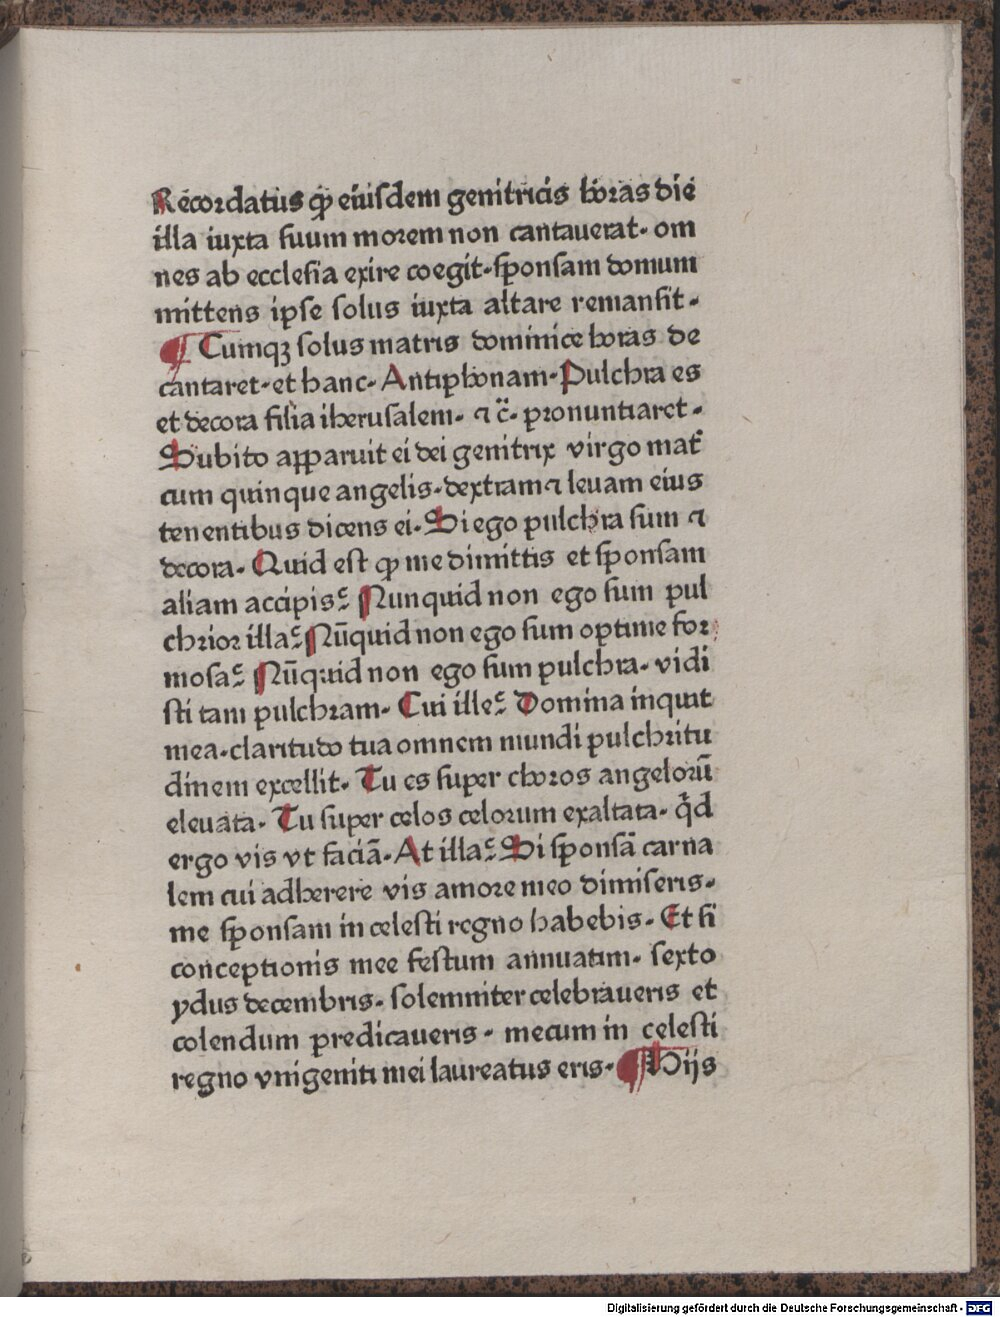 Recordatus ꝙ eiusdem genitricis horas die
illa iuxta suum morem non cantauerat· om
nes ab ecclesia exire coegit·sponsam domum
mittens ipse solus iuxta altare remansit·
¶ Cumqꝫ solus matris dominice horas de
cantaret·et hanc· Antiphonam·Pulchra es
et decora filia iherusalem· ⁊ c̈· pronuntiaret·
Subito apparuit ei dei genitrix virgo mat᷑
cum quinque angelis·dextram ⁊ leuam eius
tenentibus dicens ei·Si ego pulchra sum ⁊
decora· Quid est ꝙ me dimittis et sponsam
aliam accipis? Nunquid non ego sum pul
chrior illa? Nūquid non ego sum optime for
mosa? Nūquid non ego sum pulchra· vidi
sti tam pulchram· Cui ille? Domina inquit
mea·claritudo tua omnem mundi pulchritu
dinem excellit· Tu es super choros angelorū
eleuata· Tu super celos celorum exaltata· qd̓
ergo vis vt faciā·At illa? Si sponsā carna
lem cui adherere vis amore meo dimiseris·
me sponsam in celesti regno habebis· Et si
conceptionis mee festum annuatim· sexto
ydus decembris· solemniter celebraueris et
colendum predicaueris· mecum in celesti
regno vnigeniti mei laureatus eris· ¶ Hijs
Digitalisierung gefördert durch die Deutsche Forschungsgemeinschaft - DFG